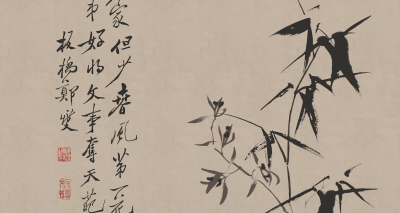 家但少春風第一花
好將文章奪天葩
板橋鄭燮